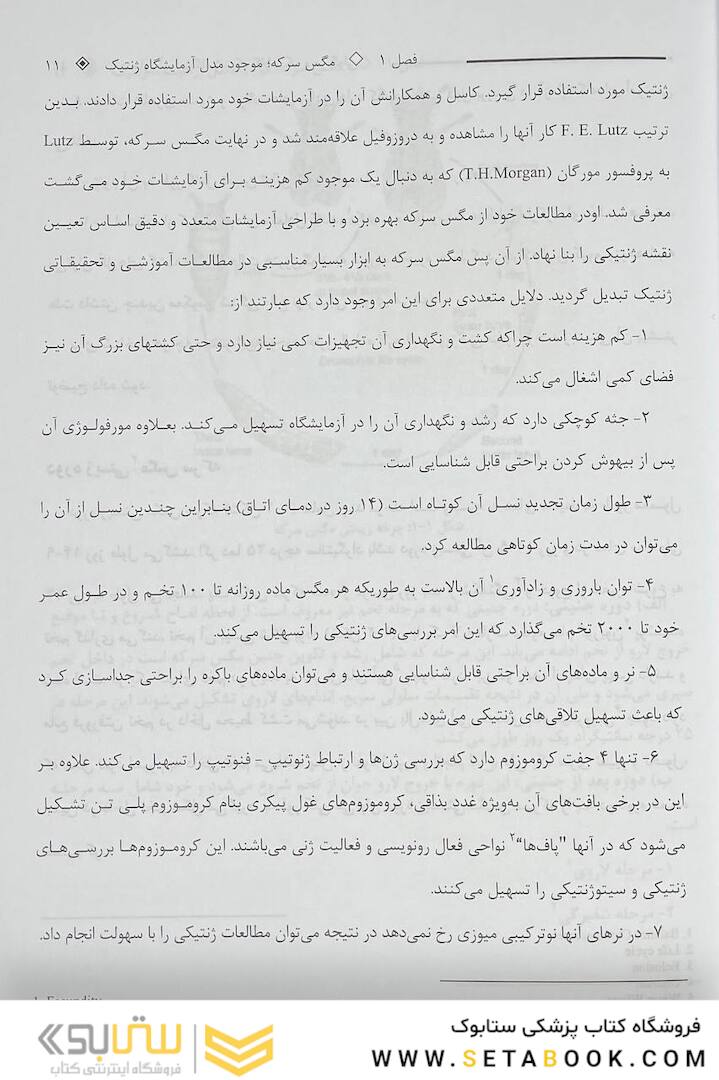 فصل ۱ ◇ مگس سرکه؛ موجود مدل آزمایشگاه ژنتیک ۱۱
ژنتیک مورد استفاده قرار گیرد. کاسل و همکارانش آن را در آزمایشات خود مورد استفاده قرار دادند. بدین
ترتیب F. E. Lutz کار آنها را مشاهده و به دروزوفیل علاقه‌مند شد و در نهایت مگس سرکه، توسط Lutz
به پروفسور مورگان (T.H.Morgan) که به دنبال یک موجود کم هزینه برای آزمایشات خود می‌گشت
معرفی شد. اودر مطالعات خود از مگس سرکه بهره برد و با طراحی آزمایشات متعدد و دقیق اساس تعیین
نقشه ژنتیکی را بنا نهاد. از آن پس مگس سرکه به ابزار بسیار مناسبی در مطالعات آموزشی و تحقیقاتی
ژنتیک تبدیل گردید. دلایل متعددی برای این امر وجود دارد که عبارتند از:
۱- کم هزینه است چراکه کشت و نگهداری آن تجهیزات کمی نیاز دارد و حتی کشتهای بزرگ آن نیز
فضای کمی اشغال می‌کند.
۲- جثه کوچکی دارد که رشد و نگهداری آن را در آزمایشگاه تسهیل می‌کند. بعلاوه مورفولوژی آن
پس از بیهوش کردن براحتی قابل شناسایی است.
۳- طول زمان تجدید نسل آن کوتاه است (۱۴ روز در دمای اتاق) بنابراین چندین نسل از آن را
می‌توان در مدت زمان کوتاهی مطالعه کرد.
۴- توان باروری و زادآوری۱ آن بالاست به طوریکه هر مگس ماده روزانه تا ۱۰۰ تخم و در طول عمر
خود تا ۲۰۰۰ تخم می‌گذارد که این امر بررسی‌های ژنتیکی را تسهیل می‌کند.
۵- نر و ماده‌های آن براحتی قابل شناسایی هستند و می‌توان ماده‌های باکره را براحتی جداسازی کرد
که باعث تسهیل تلاقی‌های ژنتیکی می‌شود.
۶- تنها ۴ جفت کروموزوم دارد که بررسی ژن‌ها و ارتباط ژنوتیپ - فنوتیپ را تسهیل می‌کند. علاوه بر
این در برخی بافت‌های آن به‌ویژه غدد بذاقی، کروموزوم‌های غول پیکری بنام کروموزوم پلی تن تشکیل
می‌شود که در آنها "پاف‌ها"۲ نواحی فعال رونویسی و فعالیت ژنی می‌باشند. این کروموزوم‌ها بررسی‌های
ژنتیکی و سیتوژنتیکی را تسهیل می‌کنند.
۷- در نرهای آنها نوترکیبی میوزی رخ نمی‌دهد در نتیجه می‌توان مطالعات ژنتیکی را با سهولت انجام داد.
فروشگاه کتاب پزشکی ستابوک
WWW.SETABOOK.COM
ستابوک
فروشگاه اینترنتی کتاب